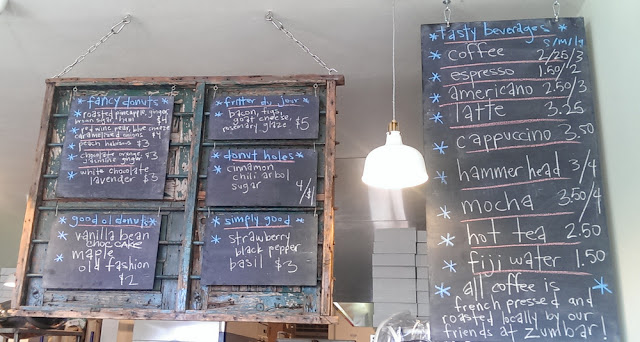 fancy donuts
roasted pineapple, ginger
brown sugar thyme $4
red wine pear, blue cheeze
caramelized onions $4
peach habañero $3
chocolate orange
jasmine ginger $3
white chocolate
lavender $3
good ol donuts
vanilla bean
choc cake
maple
old fashion
$2
fritter du jour
bacon, figs,
goat cheese,
rosemary glaze $5
donut holes
cinnamon
chili arbol
sugar 4/$1
simply good
strawberry
black pepper
basil $3
tasty beverages
S/M/lg
coffee 2/2.5/3
espresso 1.50/2
americano 2.50/3
latte 3.25
cappuccino 3.50
hammerhead 3/4
mocha 3.50/4
hot tea 2.50
fiji water 1.50
all coffee is
french pressed and
roasted locally by our
friends at zumbar!